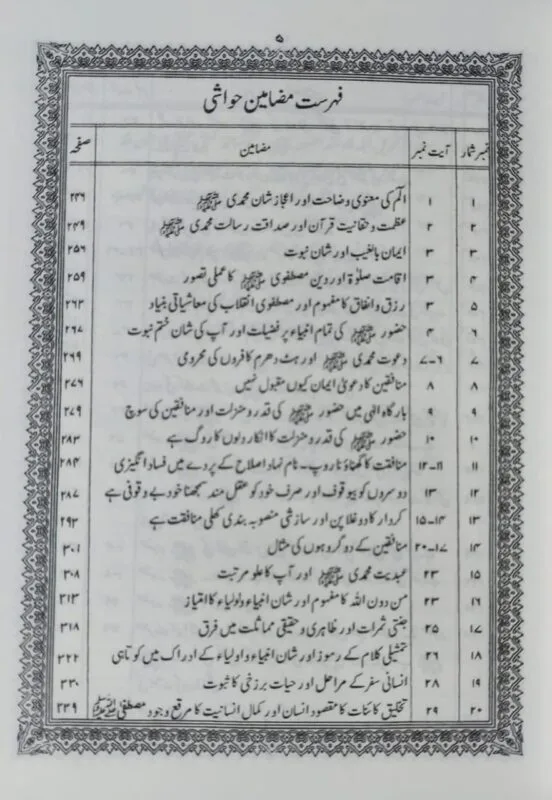 ۵
فہرست مضامین حواشی
نمبر شمار آیت نمبر مضامین صفحہ
۱ ۱ الٓمٓ کی معنوی وضاحت اور اعجاز شان محمدی ﷺ ۲۴۶
۲ ۲ عظمت و حقانیت قرآن اور صداقت رسالت محمدی ﷺ ۲۴۹
۳ ۳ ایمان بالغیب اور شان نبوت ۲۵۶
۴ ۳ اقامت صلوٰۃ اور دین مصطفوی ﷺ کا عملی تصور ۲۵۹
۵ ۳ رزق و انفاق کا مفہوم اور مصطفوی انقلاب کی معاشیاتی بنیاد ۲۶۳
۶ ۴ حضور ﷺ کی تمام انبیاء پر فضیلت اور آپ کی شان ختم نبوت ۲۶۷
۷ ۶-۷ دعوت محمدی ﷺ اور ہٹ دھرم کافروں کی محرومی ۲۶۹
۸ ۸ منافقین کا دعویٰ ایمان کیوں مقبول نہیں ۲۷۶
۹ ۹ بارگاہ الٰہی میں حضور ﷺ کی قدر و منزلت اور منافقین کی سوچ ۲۷۹
۱۰ ۱۰ حضور ﷺ کی قدر و منزلت کا انکار دلوں کا روگ ہے ۲۸۳
۱۱ ۱۱-۱۲ منافقت کا گھناؤنا روپ۔ نام نہاد اصلاح کے پردے میں فساد انگیزی ۲۸۴
۱۲ ۱۳ دوسروں کو بیوقوف اور صرف خود کو عقل مند سمجھنا خود بے وقوفی ہے ۲۸۷
۱۳ ۱۴-۱۵ کردار کا دوغلا پن اور سازشی منصوبہ بندی کھلی منافقت ہے ۲۹۳
۱۴ ۱۷-۲۰ منافقین کے دو گروہوں کی مثال ۳۰۱
۱۵ ۲۳ عبدیت محمدی ﷺ اور آپ کا علو مرتبت ۳۰۸
۱۶ ۲۳ من دون اللہ کا مفہوم اور شان انبیاء و اولیاء کا امتیاز ۳۱۳
۱۷ ۲۵ جنتی ثمرات اور ظاہری و حقیقی مماثلت میں فرق ۳۱۸
۱۸ ۲۶ تمثیلی کلام کے رموز اور شان انبیاء و اولیاء کے ادراک میں کوتاہی ۳۲۲
۱۹ ۲۸ انسانی سفر کے مراحل اور حیات برزخی کا ثبوت ۳۳۰
۲۰ ۲۹ تخلیق کائنات کا مقصود انسان اور کمال انسانیت کا مرقع وجود مصطفیٰ ﷺ ۲۳۹